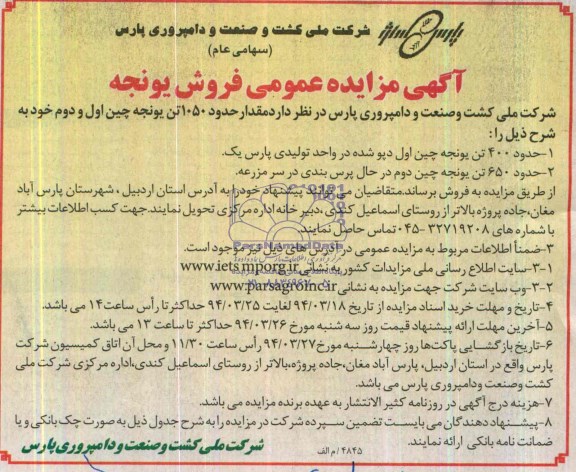 پارس
شرکت ملی کشت و صنعت و دامپروری پارس
(سهامی عام)
آگهی مزایده عمومی فروش یونجه
شرکت ملی کشت وصنعت و دامپروری پارس در نظر دارد مقدار حدود ۱۰۵۰ تن یونجه چین اول و دوم خود به
شرح ذیل را:
۱-حدود ۴۰۰ تن یونجه چین اول دپو شده در واحد تولیدی پارس یک.
۲-حدود ۶۵۰ تن یونجه چین دوم در حال پرس بندی در سر مزرعه.
از طریق مزایده به فروش برساند.متقاضیان می توانند پیشنهاد خود را به آدرس استان اردبیل ، شهرستان پارس آباد
مغان،جاده پروژه بالاتر از روستای اسماعیل کندی،دبیر خانه اداره مرکزی تحویل نمایند.جهت کسب اطلاعات بیشتر
با شماره های ۳۲۷۱۹۲۰۸-۰۴۵ تماس حاصل نمایند.
۳-ضمناً اطلاعات مربوط به مزایده عمومی در آدرس های ذیل نیز موجود است.
۳-۱-سایت اطلاع رسانی ملی مزایدات کشور به نشانی www.iets.mporg.ir
۳-۲-وب سایت شرکت جهت مزایده به نشانی www.parsagroin.ir
۴-تاریخ و مهلت خرید اسناد مزایده از تاریخ ۹۴/۰۳/۱۸ لغایت ۹۴/۰۳/۲۵ حداکثر تا رأس ساعت۱۴ می باشد.
۵-آخرین مهلت ارائه پیشنهاد قیمت روز سه شنبه مورخ ۹۴/۰۳/۲۶ حداکثر تا ساعت ۱۳ می باشد.
۶-تاریخ بازگشایی پاکت‌ها روز چهارشنبه مورخ ۹۴/۰۳/۲۷ رأس ساعت ۱۱/۳۰ و محل آن اتاق کمیسیون شرکت
پارس واقع در استان اردبیل، پارس آباد مغان،جاده پروژه،بالاتر از روستای اسماعیل کندی،اداره مرکزی شرکت ملی
کشت وصنعت ودامپروری پارس می باشد.
۷-هزینه درج آگهی در روزنامه کثیر الانتشار به عهده برنده مزایده می باشد.
۸-پیشنهاد دهندگان می بایست تضمین سپرده شرکت در مزایده را به شرح جدول ذیل به صورت چک بانکی و یا
ضمانت نامه بانکی ارائه نمایند.
۴۸۴۵ / م الف
شرکت ملی کشت وصنعت ودامپروری پارس